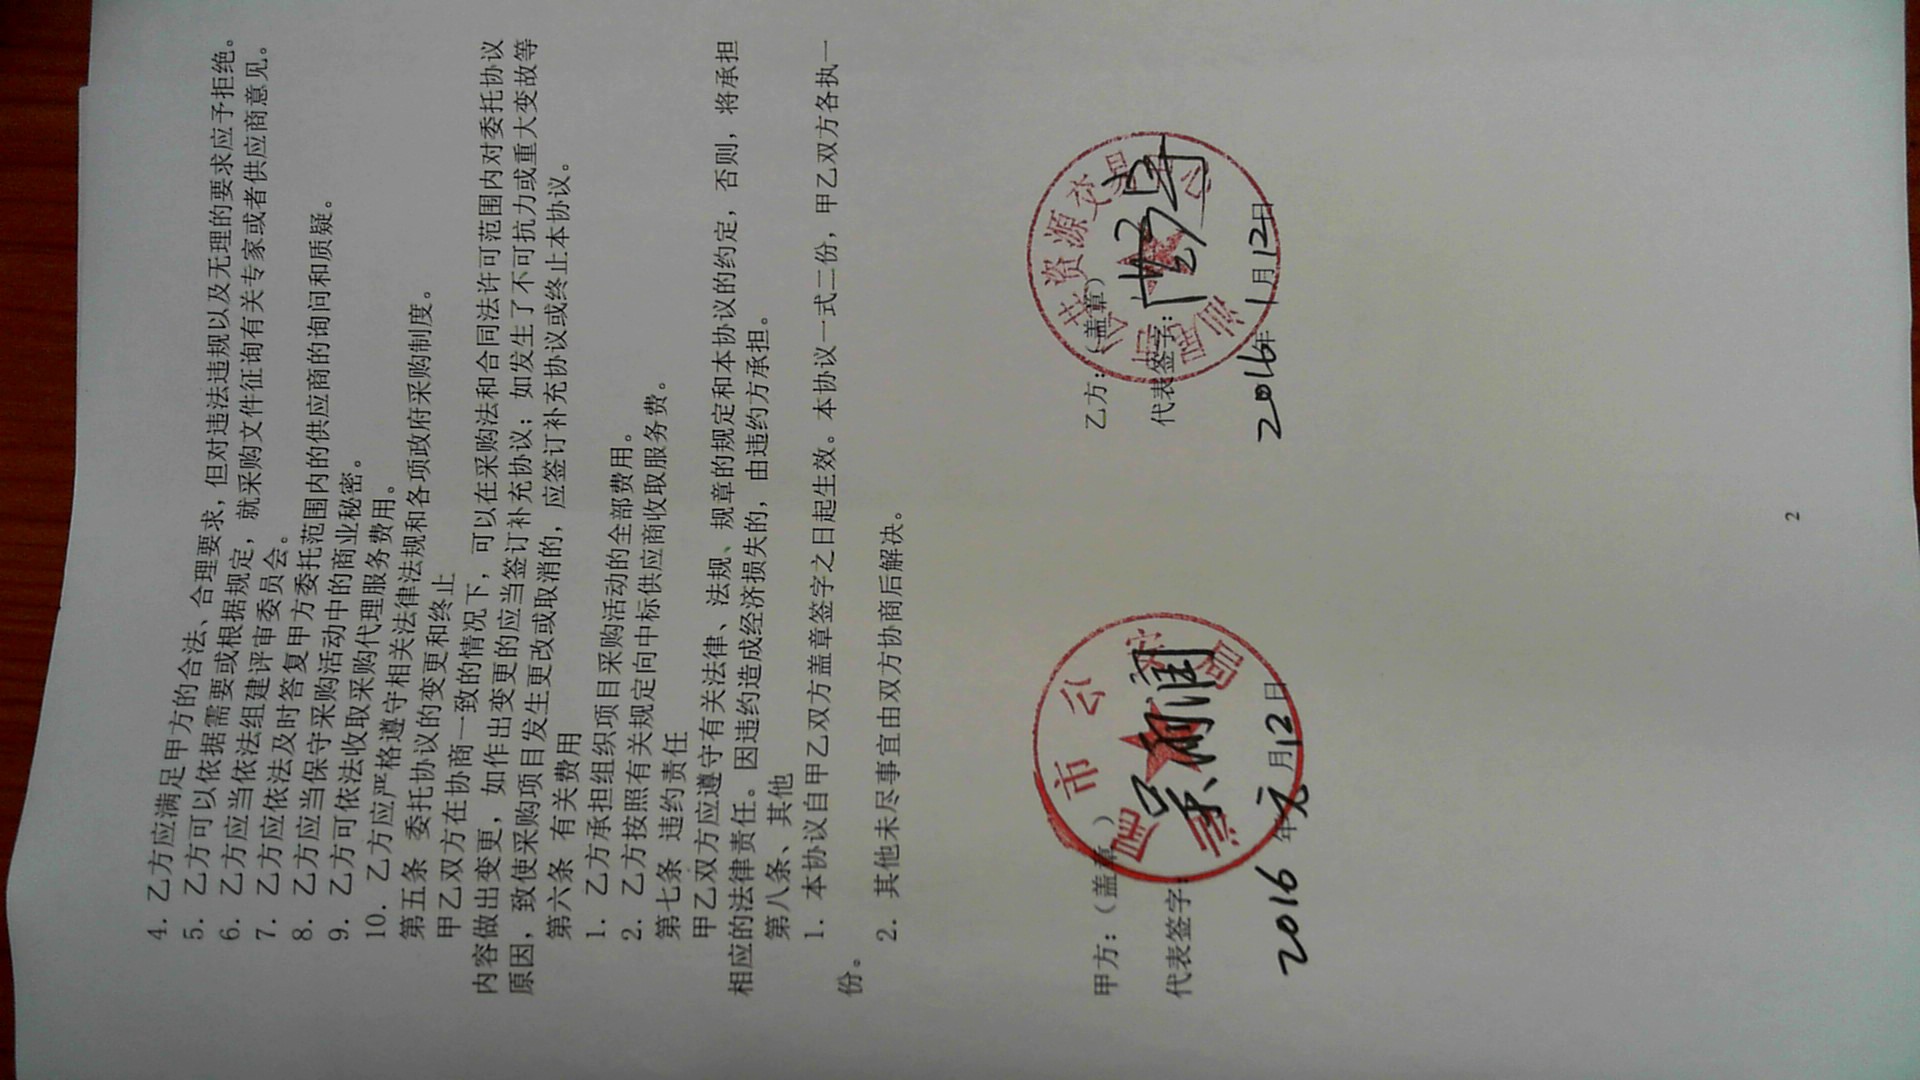 4. 乙方应满足甲方的合法、合理要求，但对违法违规以及无理的要求应予拒绝。
5. 乙方可以依据需要或根据规定，就采购文件征询有关专家或者供应商意见。
6. 乙方应当依法组建评审委员会。
7. 乙方应依法及时答复甲方委托范围内的供应商的询问和质疑。
8. 乙方应当保守采购活动中的商业秘密。
9. 乙方可依法收取采购代理服务费用。
10. 乙方应严格遵守相关法律法规和各项政府采购制度。
第五条 委托协议的变更和终止
甲乙双方在协商一致的情况下，可以在采购法和合同法许可范围内对委托协议
内容做出变更，如作出变更的应当签订补充协议；如发生了不可抗力或重大变故等
原因，致使采购项目发生更改或取消的，应签订补充协议或终止本协议。
第六条 有关费用
1. 乙方承担组织项目采购活动的全部费用。
2. 乙方按照有关规定向中标供应商收取服务费。
第七条 违约责任
甲乙双方应遵守有关法律、法规、规章的规定和本协议的约定，否则，将承担
相应的法律责任。因违约造成经济损失的，由违约方承担。
第八条、其他
1. 本协议自甲乙双方盖章签字之日起生效。本协议一式二份，甲乙双方各执一
份。
2. 其他未尽事宜由双方协商后解决。
甲方：（盖章）
代表签字：
2016年元月12日
市公安局
乙方：（盖章）
代表签字：
2016年1月12日
公共资源交易中心
2